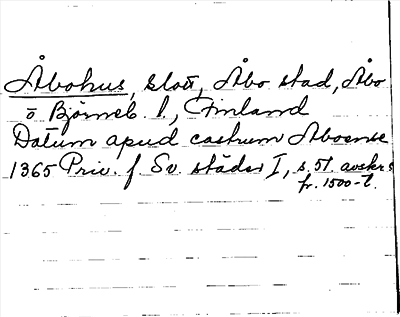 Åbohus, slott, Åbo stad, Åbo
o Björneb. l., Finland
Datum apud castrum Aboense
1365 Priv. f. Sv. städer I, s. 51. avskr.
fr. 1500-t.